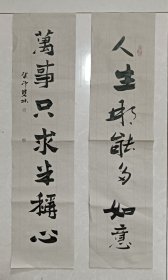 人生那能多如意
萬事只求半稱心